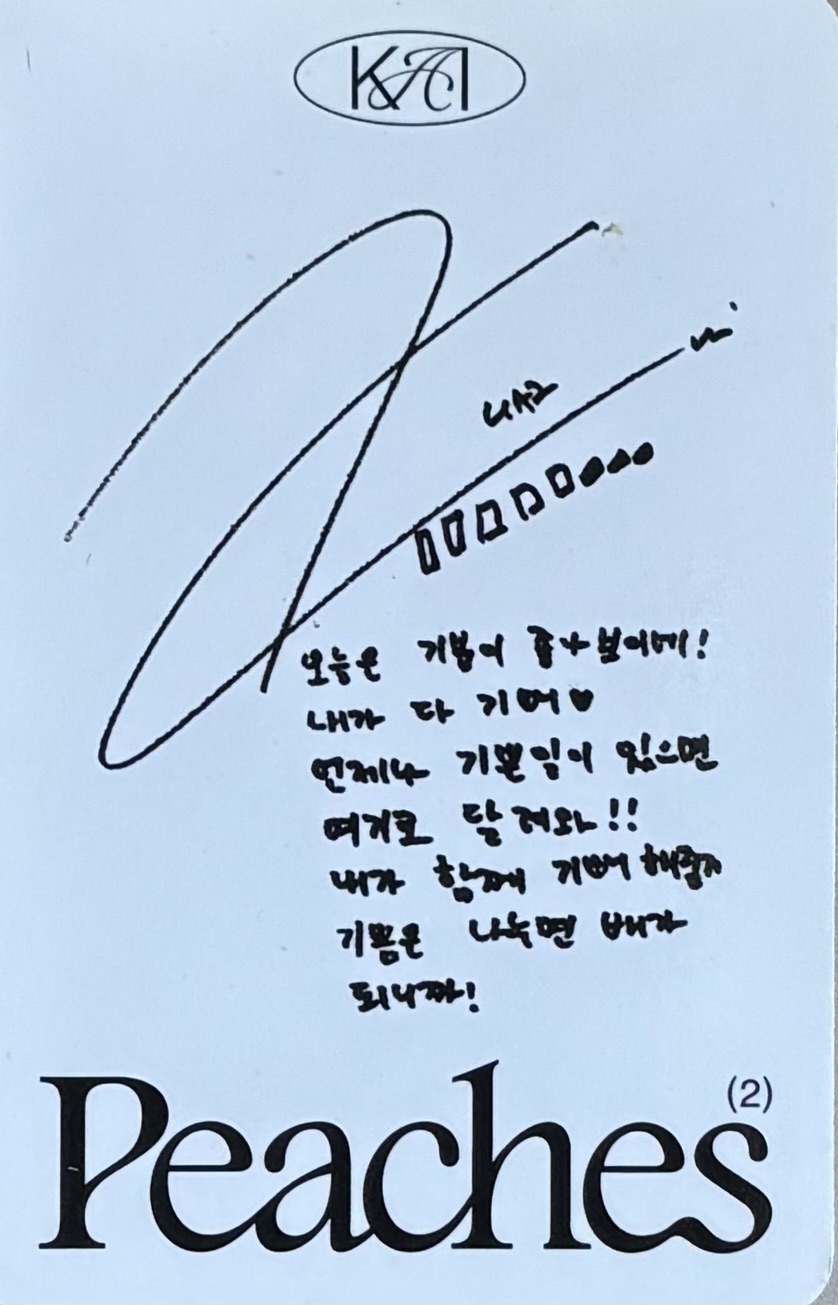 KAI
오늘은 기분이 좋나 보이네!
내가 다 기뻐♥
언제나 기쁜일이 있으면
여기로 달려와!!
내가 함께 기뻐해줄게
기쁨은 나누면 배가
되니까!
Peaches
(2)